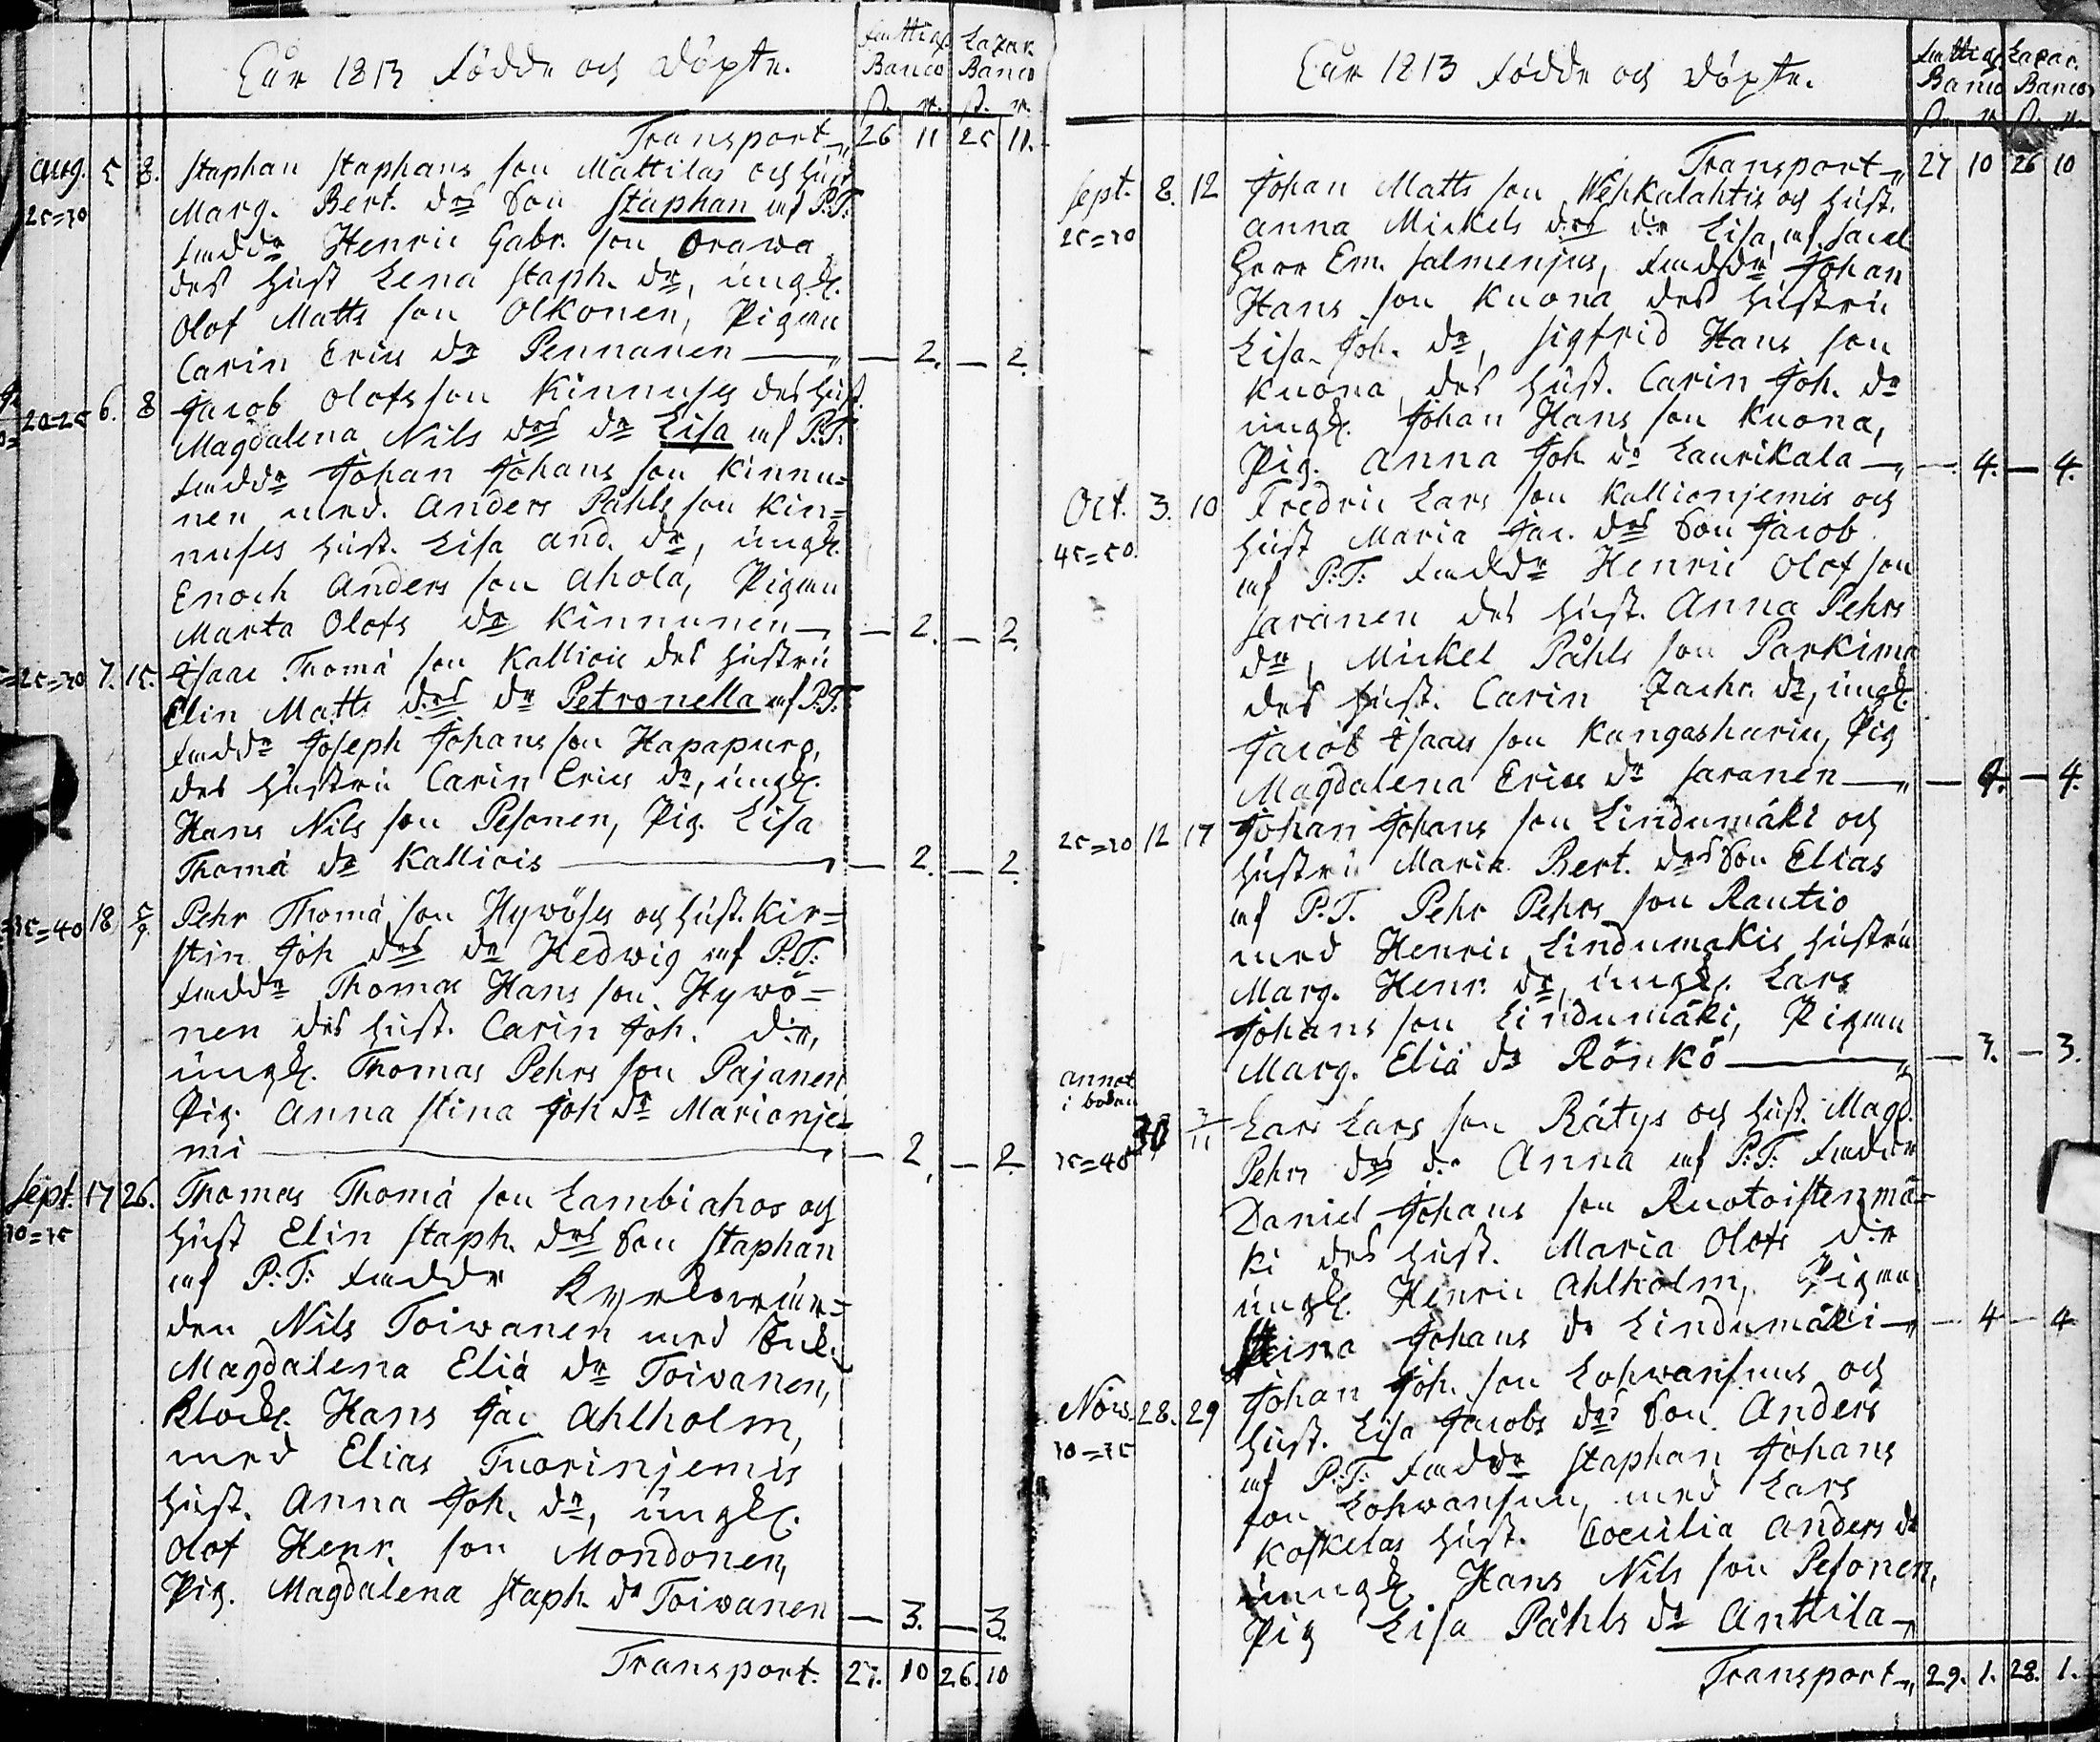 Åhr 1813 födde och döpte.
Fattigs Lazar.
Banco Banco
s. r. s. r.
Transport 26 11 25 11.
aug. 5 8. Staphan Staphans son Mattilas och hust
25=30 Marg. Bert. drs Son Staphan af P.T:
fadde Henric Gabr. son Orawa
des hust Lena Staph. dr, ungk.
Olof Matts son Olkonen, Pigan
Carin Erics dr Pennanen — 2. — 2.
20=25 6. 8 Jacob Olofs son Kinnuses des hust.
Magdalena Nils drs dr Lisa af P.T.
fadde Johan Johans son Kinnu=
nen med. Anders Påhls son Kin=
nuses hust. Lisa And. dr, ungk.
Enoch Anders son Ahola, Pigan
Marta Olofs dr Kinnunen — 2. — 2.
25=30 7. 15. Isaac Thomä son Kallioic des hustru
Elin Matts drs dr Petronella af P.T.
fadde Joseph Johans son Hapapuro,
des hustru Carin Erics dr, ungk.
Hans Nils son Pesonen, Pig. Lisa
Thomä dr Kalliois — 2. — 2.
35=40 18. 5/9. Pehr Thomä son Hywöses och hust. Kir=
stin Joh drs dr Hedwig af P.T:
fadde Thomas Hans son Hywö=
nen des hust. Carin Joh. d:r,
ungk. Thomas Pehrs son Pajanen
Pig. Anna Stina Joh dr Marianje=
mi — 2. — 2.
Sept. 17 26. Thomas Thomä son Lambiahos och
30=35 hust Elin Staph. drs Son Staphan
af P:T: fadde Kyrkowär=
den Nils Toiwanen med Enk.
Magdalena Eliä dr Toivanen,
Klock. Hans Jac Ahlholm,
med Elias Tuorinjemis
hust. Anna Joh. dr, ungk.
Olof Henr. son Mondonen,
Pig. Magdalena Staph. dr Toivanen — 3. — 3.
Transport. 27. 10 26. 10
Åhr 1813 födde och döpte.
Fattigs Lazar.
Banco Banco
s. r. s. r.
Transport 27 10 26 10
Sept. 8. 12 Johan Matts son Wehkalahtis och hust.
25=30 Anna Mickels drs d:r Lisa, af Sacel.
Herr Em. Salmenjus, fadde Johan
Hans son Kuona des hustru
Lisa Joh. dr, Sigfrid Hans son
Kuona des hust. Carin Joh. dr
ungk. Johan Hans son Kuona,
Pig. Anna Joh dr Laurikala — 4. — 4.
Oct. 3. 10 Fredric Lars son Kallionjemis och
45=50. hust Maria Jac. drs Son Jacob
af P:T: fadde Henric Olof son
Saranen des hust. Anna Pehrs
dr, Mickel Påhls son Parkima
des hust. Carin Zachr. dr, ungk.
Jacob Isaacs son Kangasharin, Pig
Magdalena Erics dr Saranen — 4. — 4.
25=30 12 17 Johan Johans son Lindumäki och
hustru Maria Bert. drs Son Elias
af P.T. Pehr Pehrs son Rautio
med Henric Lindumakis hustru
Marg. Henr. dr, ungk. Lars
Johans son Lindumäki, Pigan
Marg. Eliä dr Rönkö — 3. — 3.
annot
i boken
30 3/11 Lars Lars son Rätys och hust. Magd.
35=40 Pehrs drs d:r Anna af P:T: fadde
Daniel Johans son Ruotoistenmä=
ki des hust. Maria Olofs d:r
ungk. Henric Ahlholm, Pigan
Stina Johans dr Lindumäki — 4 — 4
Now. 28. 29 Johan Joh. son Lohwansuus och
30=35 hust. Lisa Jacobs drs Son Anders
af P:T: fadde Staphan Johans
son Lohwansuu, med Lars
Koskelas hust. Coecilia Anders dr
ungk. Hans Nils son Pesonen,
Pig Lisa Påhls dr Anttila
Transport 29. 1. 28. 1.